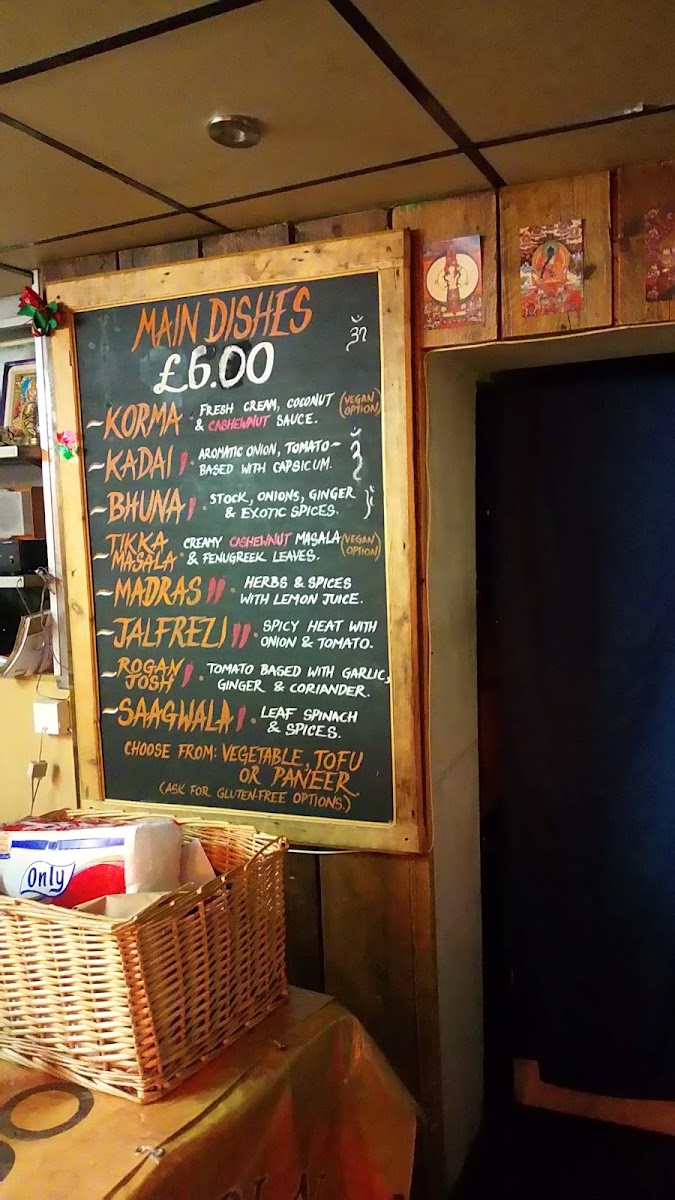 MAIN DISHES
£6.00
ॐ
~KORMA · FRESH CREAM, COCONUT (VEGAN
& CASHEWNUT SAUCE. OPTION)
~KADAI · AROMATIC ONION, TOMATO-
BASED WITH CAPSICUM.
~BHUNA · STOCK, ONIONS, GINGER
& EXOTIC SPICES.
~TIKKA CREAMY CASHEWNUT MASALA (VEGAN
MASALA · & FENUGREEK LEAVES. OPTION)
~MADRAS · HERBS & SPICES
WITH LEMON JUICE.
~JALFREZI · SPICY HEAT WITH
ONION & TOMATO.
~ROGAN · TOMATO BASED WITH GARLIC,
JOSH GINGER & CORIANDER.
~SAAGWALA · LEAF SPINACH
& SPICES.
CHOOSE FROM: VEGETABLE, TOFU
OR PANEER
(ASK FOR GLUTEN-FREE OPTIONS.)
Only